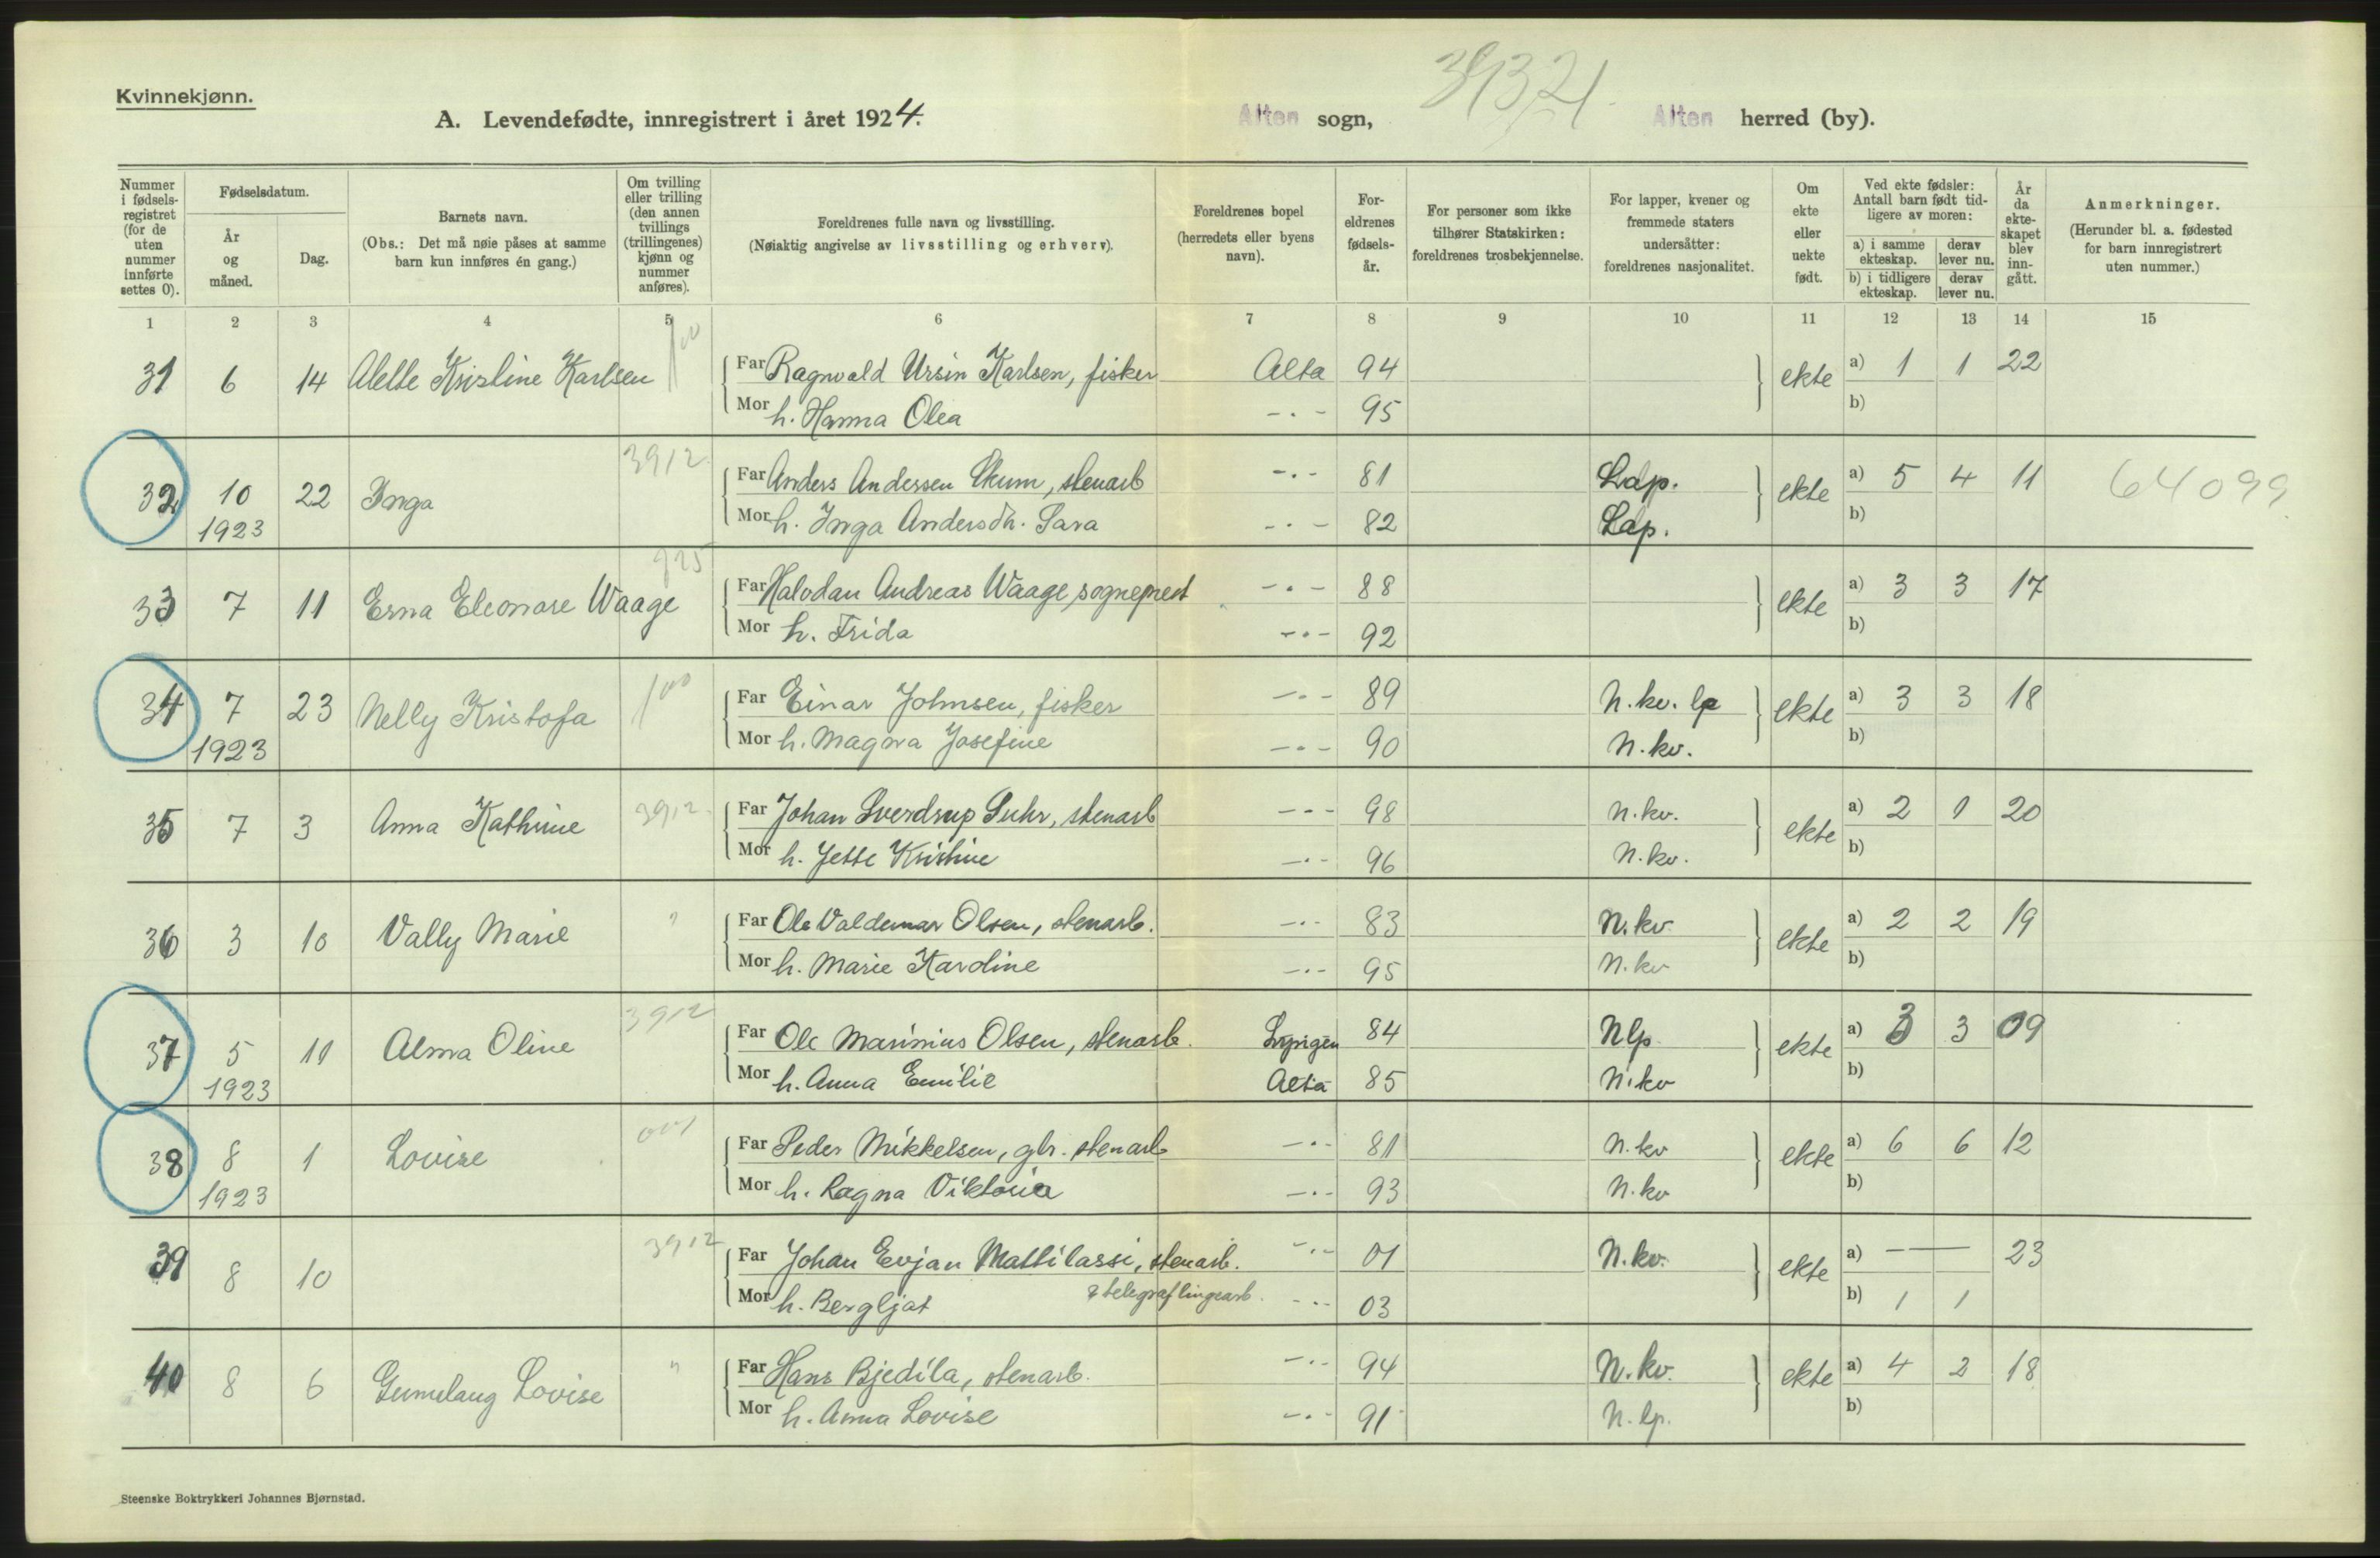 Kvinnekjønn.
A. Levendefødte, innregistrert i året 1924. Alten sogn, Alten herred (by).
39321
Nummer i fødsels-registret (for de uten nummer innførte settes 0).
Fødselsdatum.
År og måned.
Dag.
Barnets navn.
(Obs.: Det må nøie påses at samme barn kun innføres én gang.)
Om tvilling eller trilling (den annen tvillings (trillingenes) kjønn og nummer anføres).
Foreldrenes fulle navn og livsstilling.
(Nøiaktig angivelse av livsstilling og erhverv).
Foreldrenes bopel (herredets eller byens navn).
For-eldrenes fødsels-år.
For personer som ikke tilhører Statskirken: foreldrenes trosbekjennelse.
For lapper, kvener og fremmede staters undersåtter: foreldrenes nasjonalitet.
Om ekte eller uekte født.
Ved ekte fødsler: Antall barn født tid-ligere av moren:
a) i samme ekteskap.
derav lever nu.
b) i tidligere ekteskap.
derav lever nu.
År da ekte-skapet blev inn-gått.
Anmerkninger.
(Herunder bl. a. fødested for barn innregistrert uten nummer.)
1 2 3 4 5 6 7 8 9 10 11 12 13 14 15
31 6 14 Alette Kristine Karlsen 100 Far Ragnvald Ursin Karlsen, fisker Alta 94 ekte a) 1 1 22
Mor h. Hanna Olea -.- 95 b)
32 10 22 Inga 3912 Far Anders Andersen Skum, stenarb -.- 81 Lap. ekte a) 5 4 11 64099
1923 Mor h. Inga Andersdh. Sara -.- 82 Lap. b)
33 7 11 Erna Eleonore Waage 925 Far Halvdan Andreas Waage, sogneprest -.- 88 ekte a) 3 3 17
Mor h. Frida -.- 92 b)
34 7 23 Nelly Kristofa 100 Far Einar Johnsen, fisker -.- 89 N.kv. lp ekte a) 3 3 18
1923 Mor h. Magna Josefine -.- 90 N.kv. b)
35 7 3 Anna Kathrine 3912 Far Johan Sverdrup Suhr, stenarb -.- 98 N.kv. ekte a) 2 1 20
Mor h. Jette Kristine -.- 96 N.kv. b)
36 3 10 Vally Marie " Far Ole Valdemar Olsen, stenarb. -.- 83 N.kv ekte a) 2 2 19
Mor h. Marie Karoline -.- 95 N.kv b)
37 5 11 Alma Oline 3912 Far Ole Marinius Olsen, stenarb. Lyngen 84 Nlp. ekte a) 3 3 09
1923 Mor h. Anna Emilie Alta 85 N.kv b)
38 8 1 Lovise 001 Far Peder Mikkelsen, gbr. stenarb -.- 81 N.kv ekte a) 6 6 12
1923 Mor h. Ragna Viktoria -.- 93 N.kv b)
39 8 10 3912 Far Johan Evjan Mattilassi, stenarb. -.- 01 N.kv. ekte a) — 23
Mor h. Bergljot & telegraflingearb. -.- 03 b) 1 1
40 8 6 Gunnlaug Lovise " Far Hans Bjedila, stenarb. -.- 94 N.kv. ekte a) 4 2 18
Mor h. Anna Lovise -.- 91 N.lp. b)
Steenske Boktrykkeri Johannes Bjørnstad.